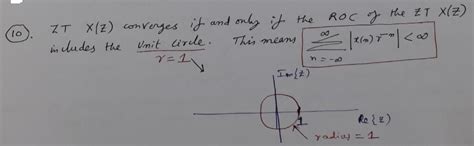 (10). ZT X(Z) converges if and only if the ROC of the ZT X(Z)
includes the Unit Circle. This means ∞ Σ n=-∞ |x(n) r⁻ⁿ| < ∞
r=1
Im{Z}
1 Re{Z}
radius = 1